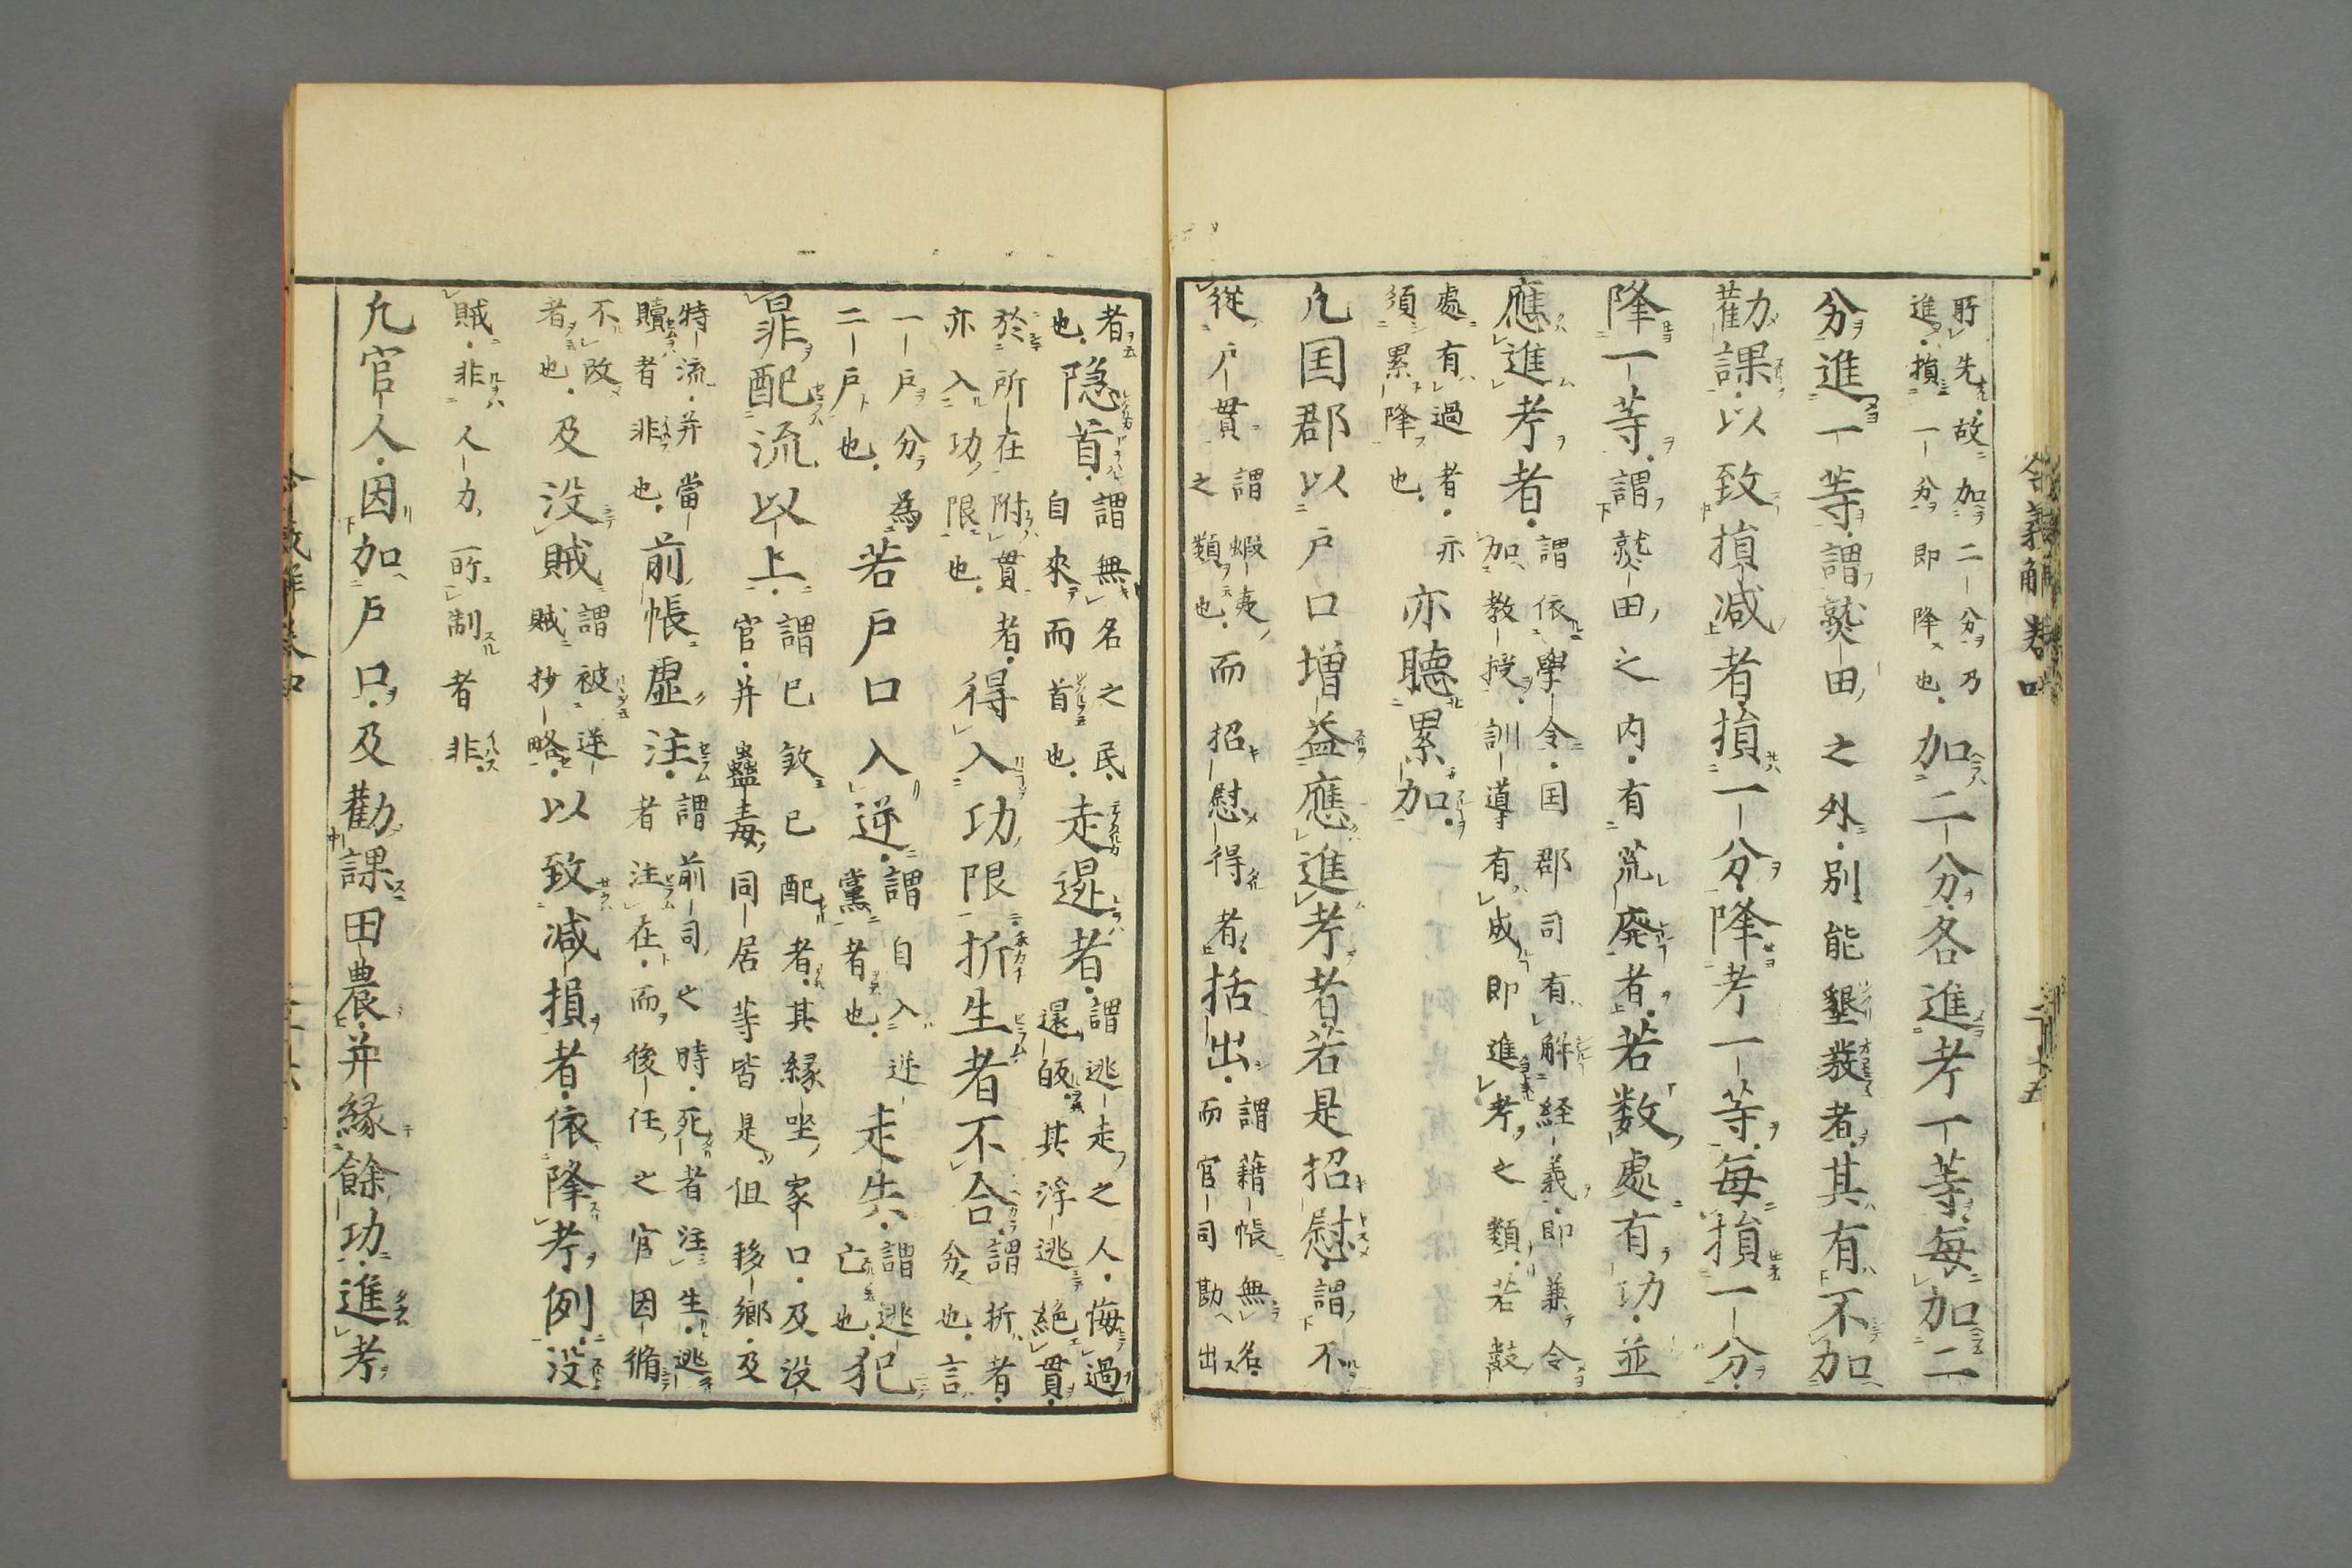 所先故加二分乃
進損一分即降也加二分各進考一等毎加二
分進一等謂𤎼田之外別能墾発者其有不加
勸課以致損减者損一分降考一等毎損一分
降一等謂𤎼田之内有荒廃者若数處有功並
應進考者謂依學令国郡司有解経義即兼令
加教授訓導有成即進考之類若鼓
處有過者亦
須累降也亦聴累加
凢国郡以戸口増益應進考者若是招慰謂不
從戸貫謂蝦夷
之類也而招慰得者括出謂藉帳無名
而官司勘出
者
也隠首謂無名之民
自來而首也走還者謂逃走之人悔過
還皈其浮逃絶貫
於所在附貫者
亦入功限也得入功限折生者不合謂折者
分也言
一戸分為
二戸也若戸口入逆謂自入逆
黨者也走失謂逃
亡也犯
罪配流以上謂已敘已配者其縁坐家口及没
官并蠱毒同居等皆是但移郷及
特流并當
贖者非也前帳虚注謂前司之時死者注生逃
者注在而後任之官因循
不改
者也及没賊謂被逆
賊抄略以致减損者依降考例没
賊非人力所制者非
凢官人因加戸口及勸課田農并縁餘功進考
令義解巻四